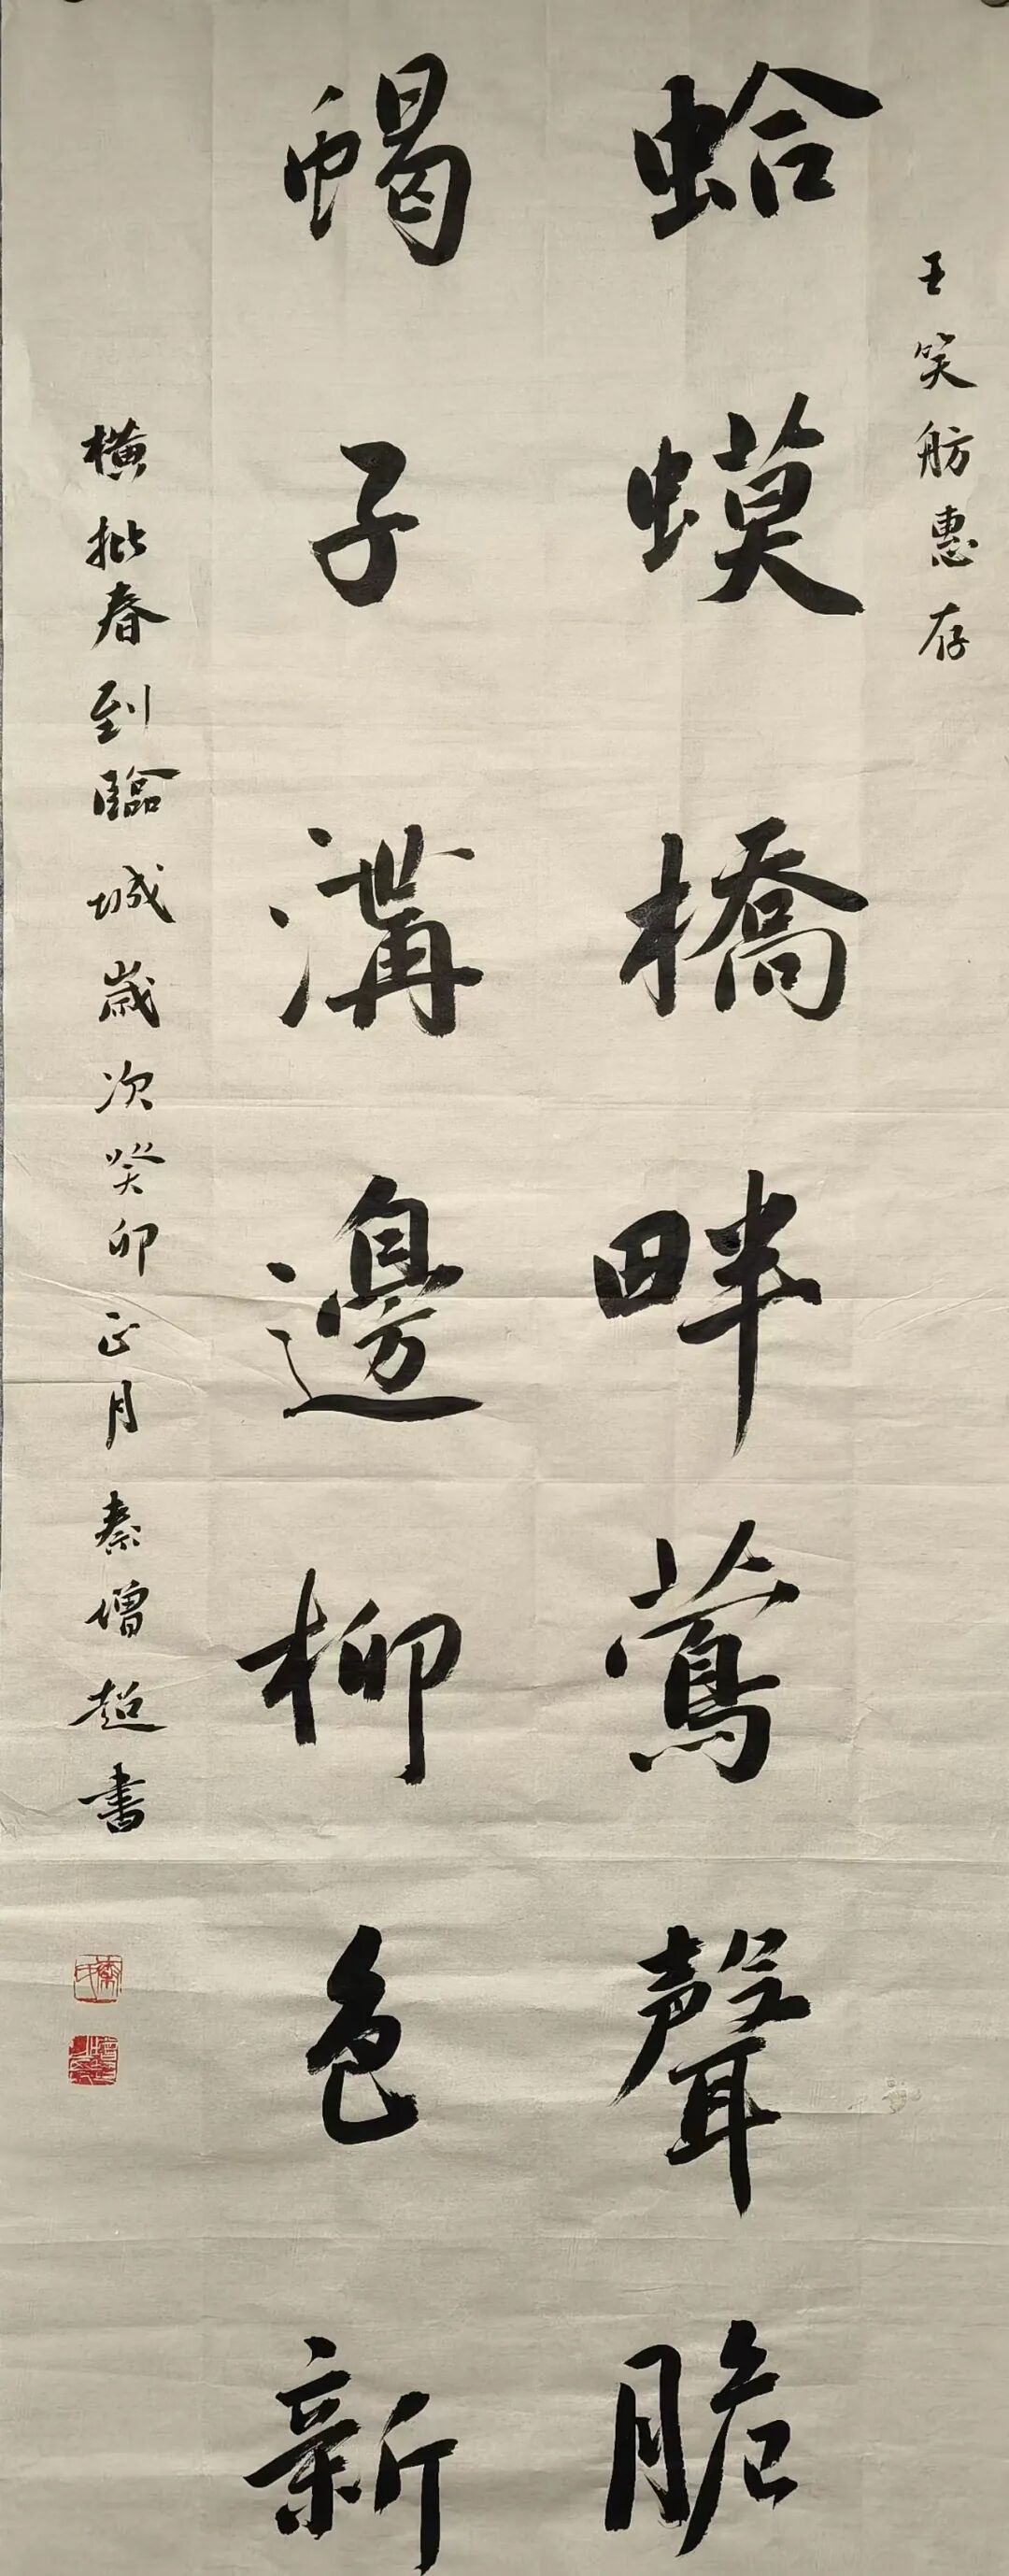 王笑舫惠存
蛤蟆橋畔鶯聲脆
蝎子溝邊柳色新
橫批春到臨城歲次癸卯正月秦僧超書